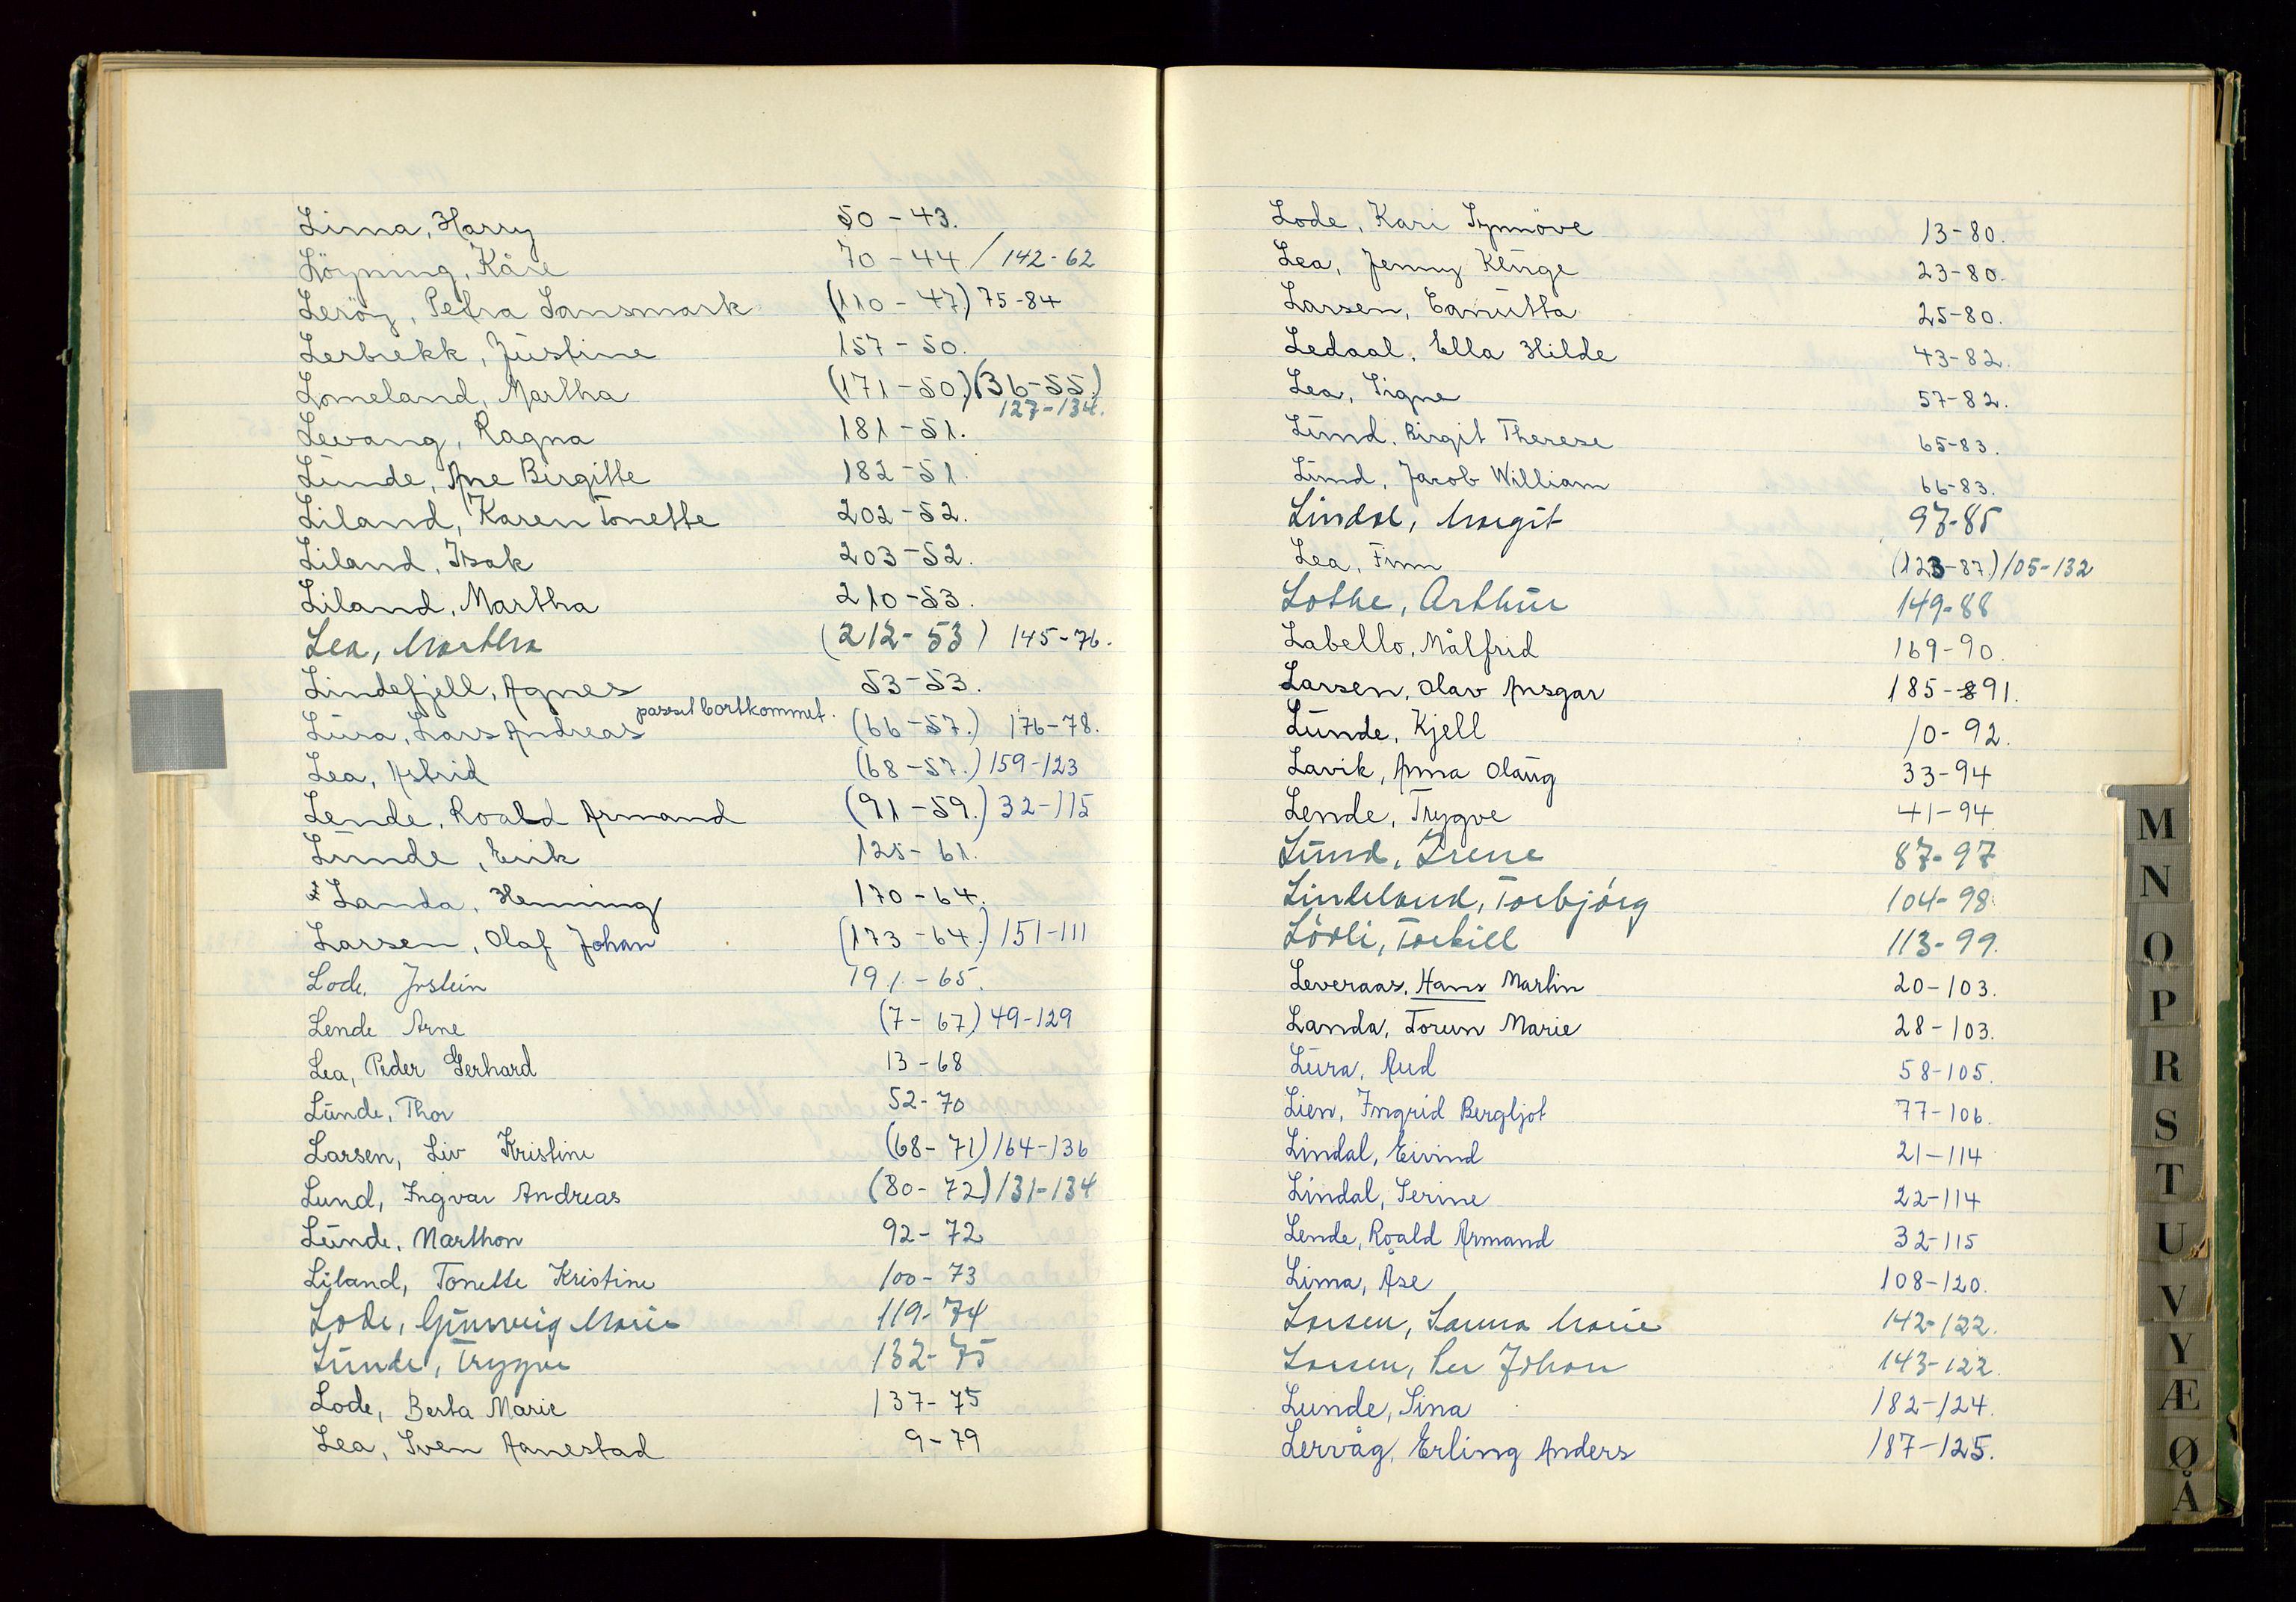 Lima, Harry 50-43.
Löyning, Kåre 70-44 / 142-62
Leröy, Petra Sansmark (110-47) 75-84
Lerbrekk, Justine 157-50.
Lomeland, Martha (171-50.) (36-55.)
127-134.
Levang, Ragna 181-51.
Lunde, Ane Birgitte 182-51.
Liland, Karen Tonette 202-52.
Liland, Isak 203-52.
Liland, Martha 210-53.
Lea, Martha (212-53) 145-76.
Lindefjell, Agnes 53-53.
passet bortkommet.
Lura, Lars Andreas (66-57.) 176-78.
Lea, Astrid (68-57.) 159-123
Lende, Roald Armand (91-59.) 32-115
Lunde, Erik 125-61.
Landa, Henning 170-64.
Larsen, Olaf Johan (173-64.) 151-111
Lode, Jostein 191-65.
Lende Arne (7-67) 49-129
Lea, Peder Gerhard 13-68
Lunde, Thor 52-70
Larsen, Liv Kristine (68-71) 164-136
Lund, Ingvar Andreas (80-72) 131-134
Lunde, Marthon 92-72
Liland, Tonette Kristine 100-73
Lode, Gunveig Marie 119-74
Lunde, Trygve 132-75
Lode, Berta Marie 137-75
Lea, Sven Aanestad 9-79
Lode, Kari Synnöve 13-80.
Lea, Jenny Kluge 23-80.
Larsen, 25-80.
Ledaal, Ella Hilde 43-82.
Lea, Signe 57-82.
Lund, Birgit Therese 65-83.
Lund, Jacob William 66-83.
Lindal, Margit 97-85
Lea, Finn (123-87.) 105-132
Lothe, Arthur 149-88
Labello, Målfrid 169-90.
Larsen, Olav Ansgar 185-891.
Lunde, Kjell 10-92.
Lavik, Anna Olaug 33-94
Lende, Trygve 41-94
Lund, Irene 87-97
Lindeland, Torbjörg 104-98.
Lövli, Torkill 113-99.
Leveraas, Hans Martin 20-103.
Landa, Torun Marie 28-103.
Lura, Aud 58-105.
Lien, Ingrid Bergljot 77-106.
Lindal, Eivind 21-114
Lindal, Serine 22-114
Lende, Roald Armand 32-115
Lima, Åse 108-120.
Larsen, Sanna Marie 142-122.
Larsen, Per Johan 143-122.
Lunde, Sina 182-124.
Lervåg, Erling Anders 187-125.
M
N
O
P
R
S
T
U
V
Y
Æ
Ø
Å